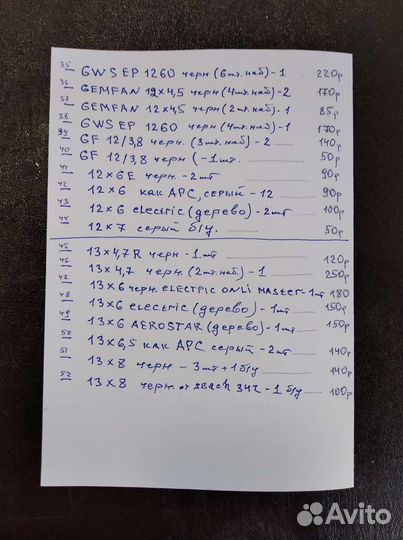 35 GWS EP 1260 черн (6шт. наб) - 1 220р
36 GEMFAN 12x4,5 черн (4шт. наб) - 2 170р
37 GEMFAN 12x4,5 черн (2шт. наб) - 1 85р
38 GWS EP 1260 черн (4шт. наб) - 1 170р
39 GF 12/3,8 черн. (3шт. наб) - 2 140р
40 GF 12/3,8 черн (-1шт. 50р
41 12x6E черн. - 2шт 90р
42 12x6 как APC, серый - 12 90р
43 12x6 electric (дерево) - 2шт 100р
44 12x7 серый б/у. 50р
45 13x4,7R черн - 1шт 120р
46 13x4,7 черн. (2шт. наб.) - 1 250р
47 13x6 черн. ELECTRIC ONLI MASTER - 1шт 180
48 13x6 electric (дерево) - 1шт 150р
49 13x6 AEROSTAR (дерево) - 1шт 150р
50 13x6,5 как APC серый - 2шт 140р
51 13x8 черн - 3шт + 1б/у 140р
52 13x8 черн. от sbach 342 - 1 б/у 100р
Avito